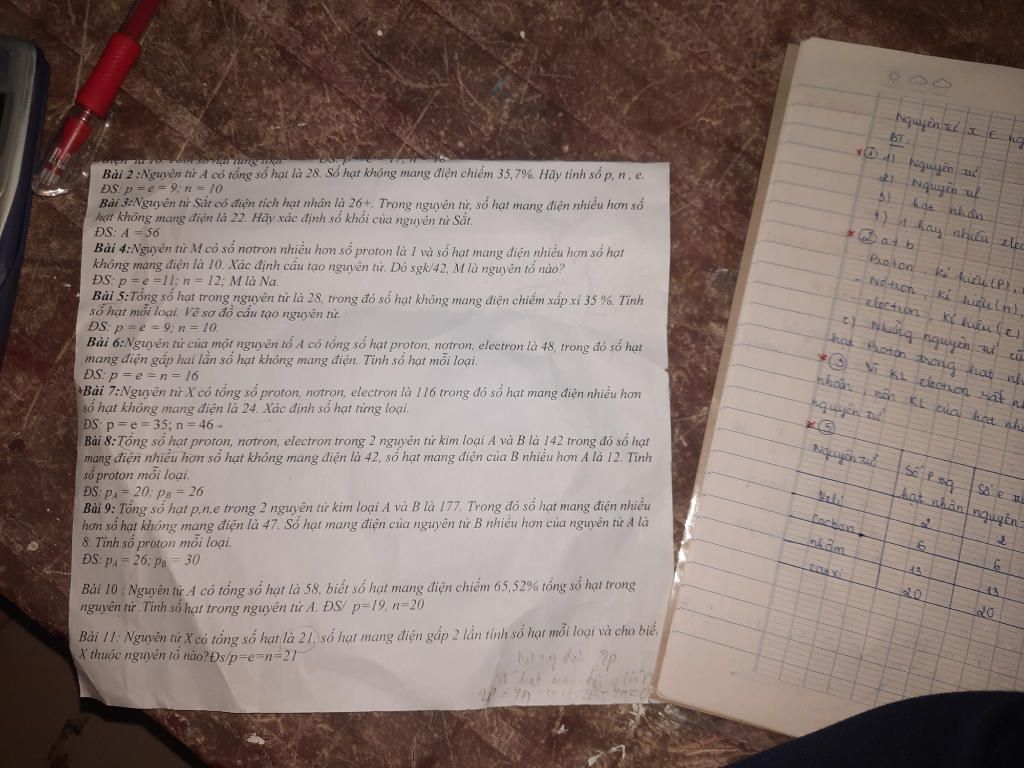 Bài 2 :Nguyên tử A có tổng số hạt là 28. Số hạt không mang điện chiếm 35,7%. Hãy tính số p, n , e.
ĐS: p = e = 9; n = 10
Bài 3:Nguyên tử Sắt có điện tích hạt nhân là 26+. Trong nguyên tử, số hạt mang điện nhiều hơn số
hạt không mang điện là 22. Hãy xác định số khối của nguyên tử Sắt.
ĐS: A = 56
Bài 4:Nguyên tử M có số nơtron nhiều hơn số proton là 1 và số hạt mang điện nhiều hơn số hạt
không mang điện là 10. Xác định cấu tạo nguyên tử. Dò sgk/42, M là nguyên tố nào?
ĐS: p = e =11; n = 12; M là Na.
Bài 5:Tổng số hạt trong nguyên tử là 28, trong đó số hạt không mang điện chiếm xấp xỉ 35 %. Tính
số hạt mỗi loại. Vẽ sơ đồ cấu tạo nguyên tử.
ĐS: p = e = 9; n = 10.
Bài 6:Nguyên tử của một nguyên tố A có tổng số hạt proton, nơtron, electron là 48, trong đó số hạt
mang điện gấp hai lần số hạt không mang điện. Tính số hạt mỗi loại.
ĐS: p = e = n = 16
Bài 7:Nguyên tử X có tổng số proton, nơtron, electron là 116 trong đó số hạt mang điện nhiều hơn
số hạt không mang điện là 24. Xác định số hạt từng loại.
ĐS: p = e = 35; n = 46
Bài 8:Tổng số hạt proton, nơtron, electron trong 2 nguyên tử kim loại A và B là 142 trong đó số hạt
mang điện nhiều hơn số hạt không mang điện là 42, số hạt mang điện của B nhiều hơn A là 12. Tính
số proton mỗi loại.
ĐS: pA = 20; pB = 26
Bài 9: Tổng số hạt p,n,e trong 2 nguyên tử kim loại A và B là 177. Trong đó số hạt mang điện nhiều
hơn số hạt không mang điện là 47. Số hạt mang điện của nguyên tử B nhiều hơn của nguyên tử A là
8. Tính số proton mỗi loại.
ĐS: pA = 26; pB = 30
Bài 10 : Nguyên tử A có tổng số hạt là 58, biết số hạt mang điện chiếm 65,52% tổng số hạt trong
nguyên tử .Tính số hạt trong nguyên tử A. ĐS/ p=19, n=20
Bài 11: Nguyên tử X có tổng số hạt là 21, số hạt mang điện gấp 2 lần tính số hạt mỗi loại và cho biết
X thuộc nguyên tố nào?Đs/p=e=n=21
Nguyên tử X
BT:
① 1) Nguyên tử
2) Nguyên tử
3) hạt nhân
4) 1 hay nhiều
② a + b
Proton, kí hiệu (P),
Nơtron, kí hiệu (n),
electron, kí hiệu (e)
c) Những nguyên tử
hạt Proton trong hạt
③ Vì KL electron rất
nhân, nên KL của hạt
nguyên tử
⑤
Nguyên tử Số P Số e
hạt nhân nguyên
Heli 2 2
cacbon 6 6
nhôm 13 13
canxi 20 20